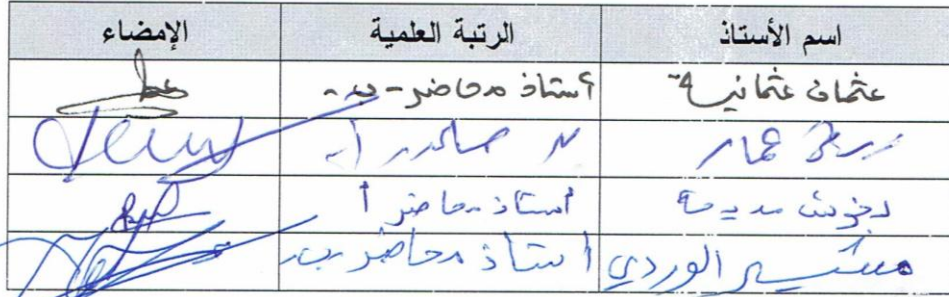 اسم الأستاذ الرتبة العلمية الإمضاء
عثمان عثمانية أستاذ محاضر - ب -
عمار محاضر أ
دخوش مديحة أستاذ محاضر أ
الوردي أستاذ محاضر ب